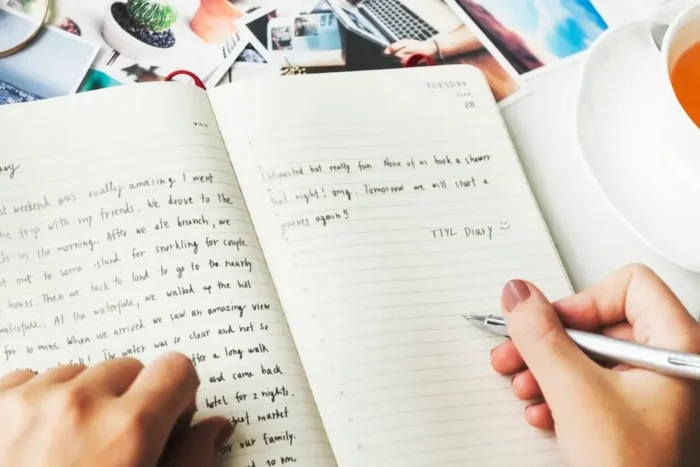 ary
weekend was really amazing. I went
trip with my friends. We drove to the
in the morning. After we ate brunch, we
out to some island for snorkling for couple
hours. Then we back to land to go to the nearby
waterfall. At the waterfall, we walked up the hill
for 10 mins. When we arrived we saw an amazing view
! The water was so clear and not so
after a long walk
and came back
hotel for 2 nights.
market
for our family.
10 pm.
TUESDAY
June
28
Exhausted but really fun. None of us took a shower
last night! omg. Tomorrow we will start a
journey again!!
TTYL Diary